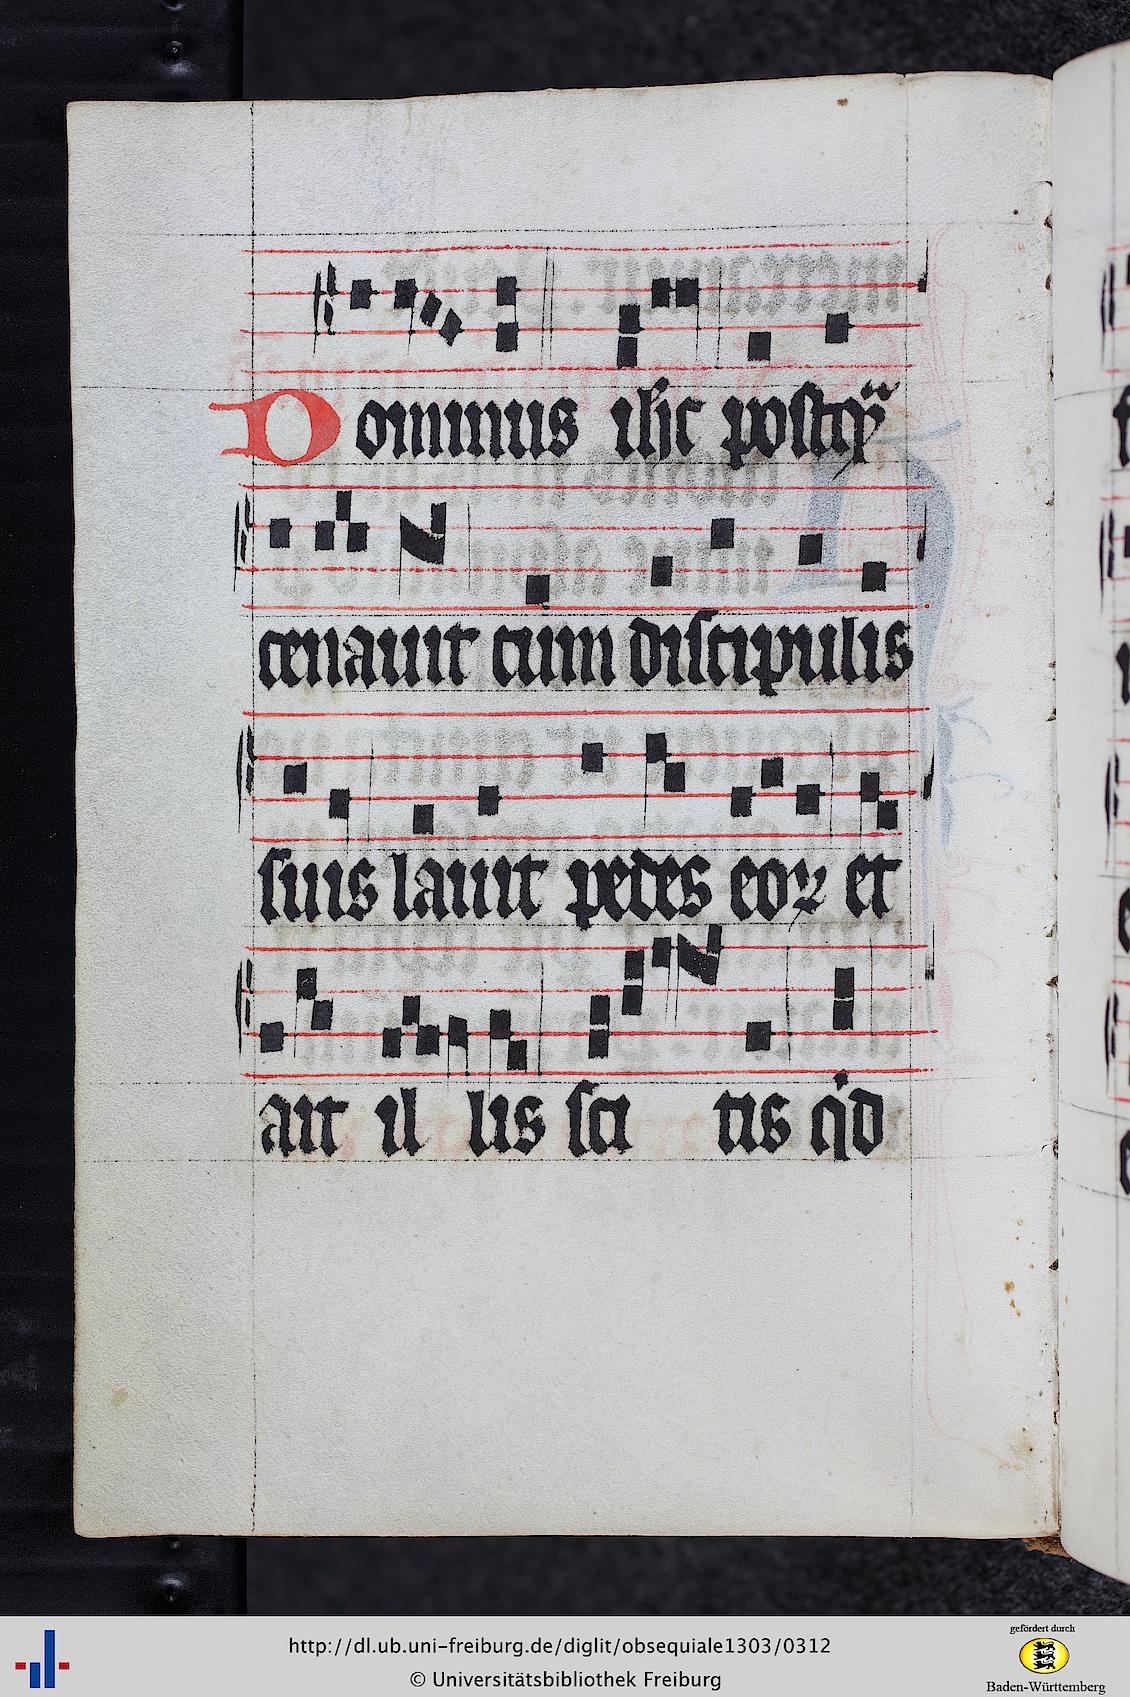 Dominus ihc postqȝ
cenauit cum discipulis
suis lauit pedes eoꝝ et
ait il lis sci tis qd
http://dl.ub.uni-freiburg.de/diglit/obsequiale1303/0312
© Universitätsbibliothek Freiburg
gefördert durch
Baden-Württemberg